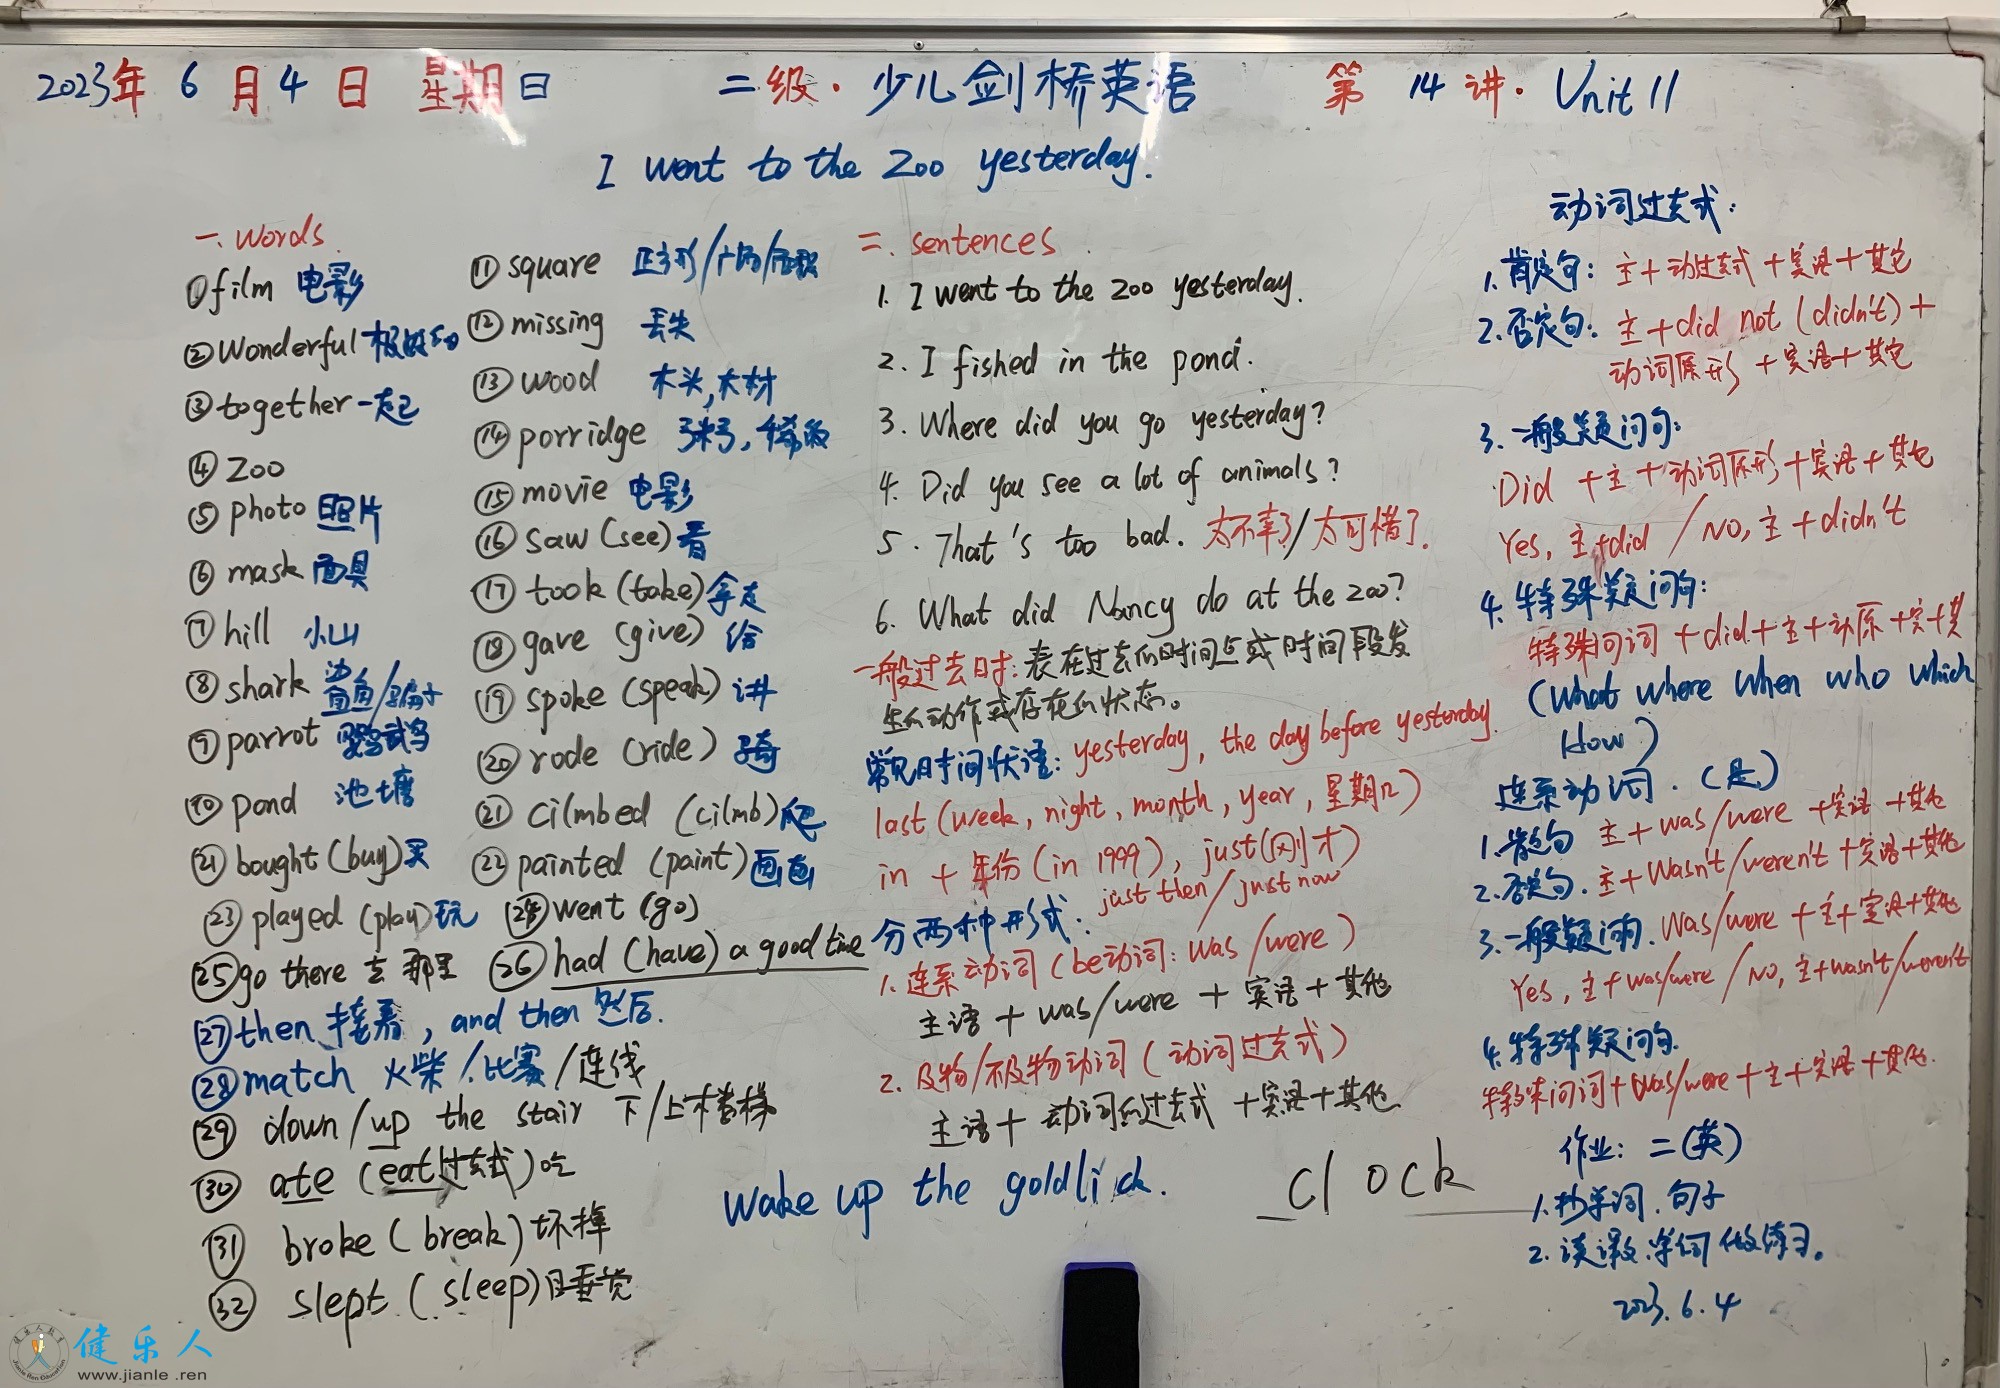 2023年 6 月 4 日 星期日 二级·少儿剑桥英语 第 14 讲·Unit 11
I went to the Zoo yesterday.
一. Words.
①film 电影
②Wonderful 极好的
③together 一起
④Zoo
⑤photo 照片
⑥mask 面具
⑦hill 小山
⑧shark 鲨鱼/骗子
⑨parrot 鹦鹉
⑩pond 池塘
⑪square 正方形/广场/
⑫missing 丢失
⑬wood 木头,木材
⑭porridge 粥,稀饭
⑮movie 电影
⑯saw (see) 看
⑰took (take) 拿走
⑱gave (give) 给
⑲spoke (speak) 讲
⑳rode (ride) 骑
㉑cilmbed (cilmb) 爬
㉒painted (paint) 画画
㉑bought (buy) 买
㉓played (play) 玩
㉔went (go)
㉕go there 去那里
㉖had (have) a good time
㉗then 接着, and then 然后.
㉘match 火柴/比赛/连线
㉙down/up the stair 下/上楼梯
㉚ate (eat过去式) 吃
㉛broke (break) 坏掉
㉜slept (sleep) 睡觉
二. sentences.
1. I went to the zoo yesterday.
2. I fished in the pond.
3. Where did you go yesterday?
4. Did you see a lot of animals?
5. That's too bad. 太不幸了/太可惜了.
6. What did Nancy do at the zoo?
一般过去时: 表在过去的时间点或时间段发
生的动作或存在的状态。
常见时间状语: yesterday, the day before yesterday.
last (week, night, month, year, 星期几)
in + 年份 (in 1999), just(刚才)
just then/just now
分两种形式:
1. 连系动词 (be动词: was/were)
主语 + was/were + 宾语 + 其他
2. 及物/不及物动词 (动词过去式)
主语 + 动词的过去式 + 宾语 + 其他
Wake up the goldlick.
_cl ock
动词过去式:
1. 肯定句: 主+动过去式+宾语+其它
2. 否定句: 主+did not (didn't) +
动词原形 + 宾语 + 其它
3. 一般疑问句:
Did + 主 + 动词原形 + 宾语 + 其它
Yes, 主+did / No, 主+didn't
4. 特殊疑问句:
特殊问词 + did + 主 + 动原 + 宾 + 其
(What where when who which
How)
连系动词. (是)
1. 肯定句 主 + was/were + 宾语 + 其他
2. 否定句. 主 + Wasn't/weren't + 宾语 + 其他
3. 一般疑问句. Was/were + 主 + 宾语 + 其他
Yes, 主+was/were / No, 主+wasn't/weren't
4. 特殊疑问句.
特殊问词 + Was/were + 主 + 宾语 + 其他.
作业: 二(英)
1. 抄单词. 句子
2. 读课文.单词 做练习。
2023.6.4
健乐人
www.jianle.ren